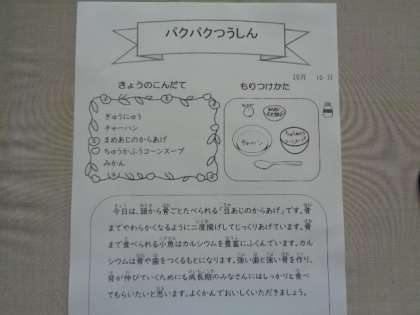 パクパクつうしん
きょうのこんだて
もりつけかた
10月 10日
ぎゅうにゅう
チャーハン
まめあじのからあげ
ちゅうかふうコーンスープ
みかん
チャーハン
今日は、頭から骨ごとたべられる「豆あじのからあげ」です。骨
までやわらかくなるように二度揚げしてじっくりあげています。骨
まで食べられる小魚はカルシウムを豊富にふくんでいます。カル
シウムは骨や歯をつくるもとになります。強い歯と強い骨を作り、
背が伸びていくためにも成長期のみなさんにはしっかりと食べ
てもらいたいと思います。よくかんでおいしくいただきましょう。